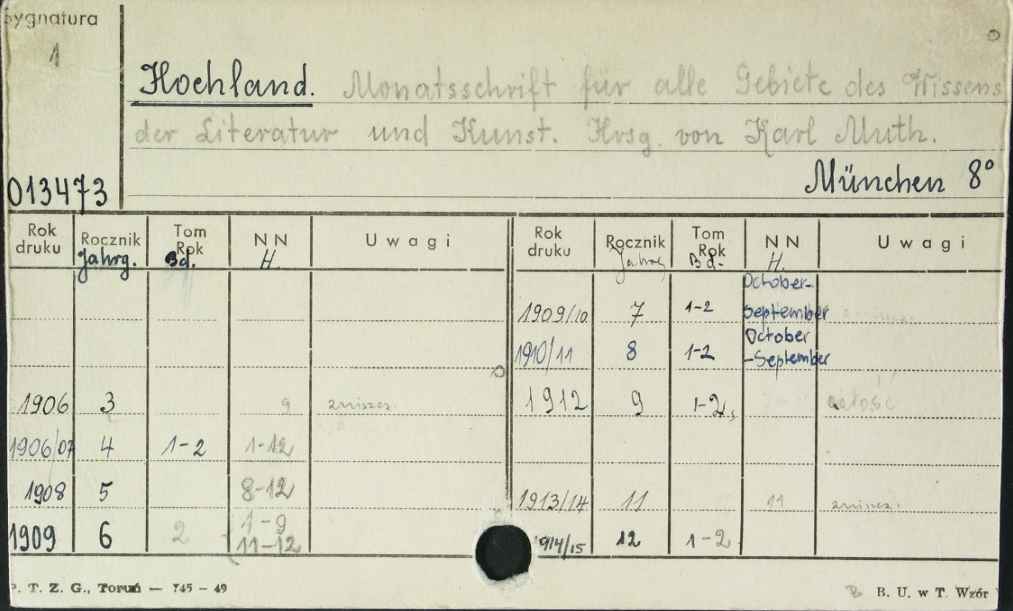 Sygnatura
1
Hochland. Monatsschrift für alle Gebiete des Wissens
der Literatur und Kunst. Hrsg. von Karl Muth.
München 8°
013473
Rok druku Rocznik Jahrg. Tom Rok Bd. NN H. Uwagi
1906 3 9 zniszcz.
1906/07 4 1-2 1-12
1908 5 8-12
1909 6 2 1-9
11-12
Rok druku Rocznik Jahrg. Tom Rok Bd. NN H. Uwagi
1909/10 7 1-2 October-
September
1910/11 8 1-2 October
-September
1912 9 1-2, całość
1913/14 11 11 zniszcz.
914/15 12 1-2
P. T. Z. G., Toruń — 745 – 49
B. U. w T. Wzór